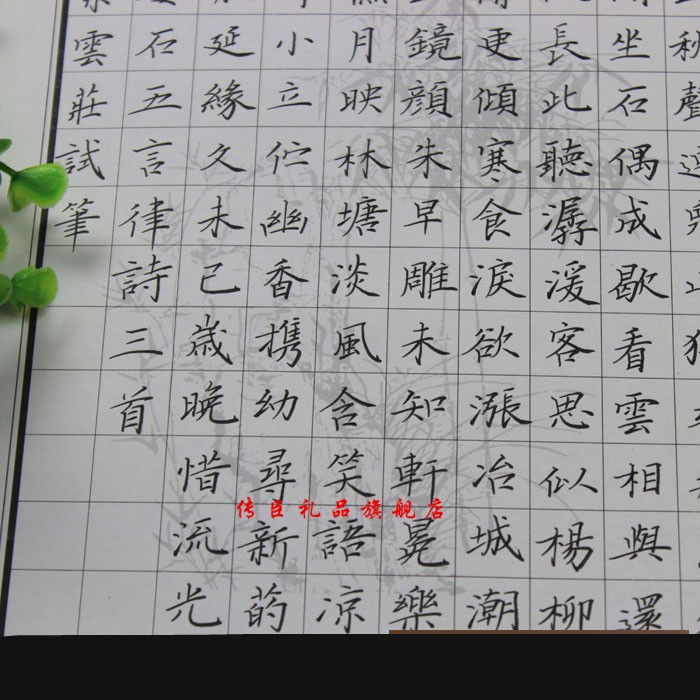 秋聲
坐石偶成歇看雲相與還
長此聽潺湲客思似楊柳
更傾寒食淚欲漲冶城潮
鏡顏朱早雕未知軒冕樂
月映林塘淡風含笑語涼
小立佇幽香携幼尋新菂
延緣文未已歲晚惜流光
石五言律詩三首
雲莊試筆
传臣礼品旗舰店